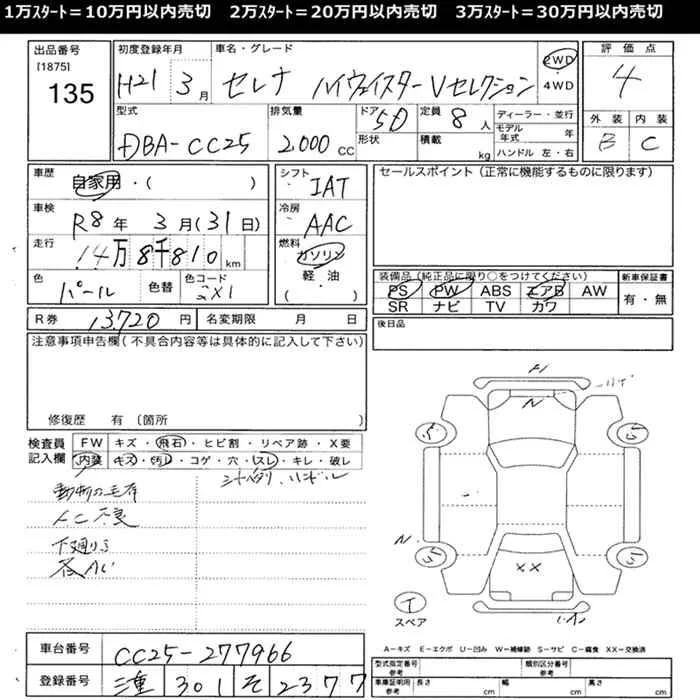 1万ｽﾀｰﾄ＝10万円以内売切　2万ｽﾀｰﾄ＝20万円以内売切　3万ｽﾀｰﾄ＝30万円以内売切
出品番号 初度登録年月 車名・グレード 2WD ・4WD 評価点
[1875]
135 H21 3月 セレナ ハイウェイスター Vセレクション 4
型式 排気量 ドア 形状 定員 積載 ディーラー・並行 外装 内装
DBA-CC25 2,000 CC 5D 8人 kg モデル年式 年 B C
ハンドル 左・右
車歴 自家用・( ) シフト IAT セールスポイント（正常に機能するものに限ります）
車検 R8年 3月(31日) 冷房 AAC
走行 14万8千810km 燃料 ガソリン 軽・油 ( )
色 パール 色替 色コード 装備品（純正品に限り○をつけてください） 新車保証書
PS PW ABS エアB AW 有・無
SR ナビ TV カワ
R券 13,720円 名変期限 月 日 後日品
注意事項申告欄（不具合内容等は具体的に記入して下さい）
修復歴 有〔箇所
検査員記入欄 FW キズ・飛石・ヒビ割・リペア跡・X要
内装 キズ・汚れ・コゲ・穴・スレ・キレ・破レ
ハンドル
下廻り
XX
スペア
車台番号 CC25-277966
登録番号 三重 301 そ 2377
A－キズ E－エクボ U－凹み W－補修跡 S－サビ C－腐食 XX－交換済
型式指定番号 参考 類別区分番号 参考
車庫証明用 参考 長さ cm 幅 cm 高さ cm